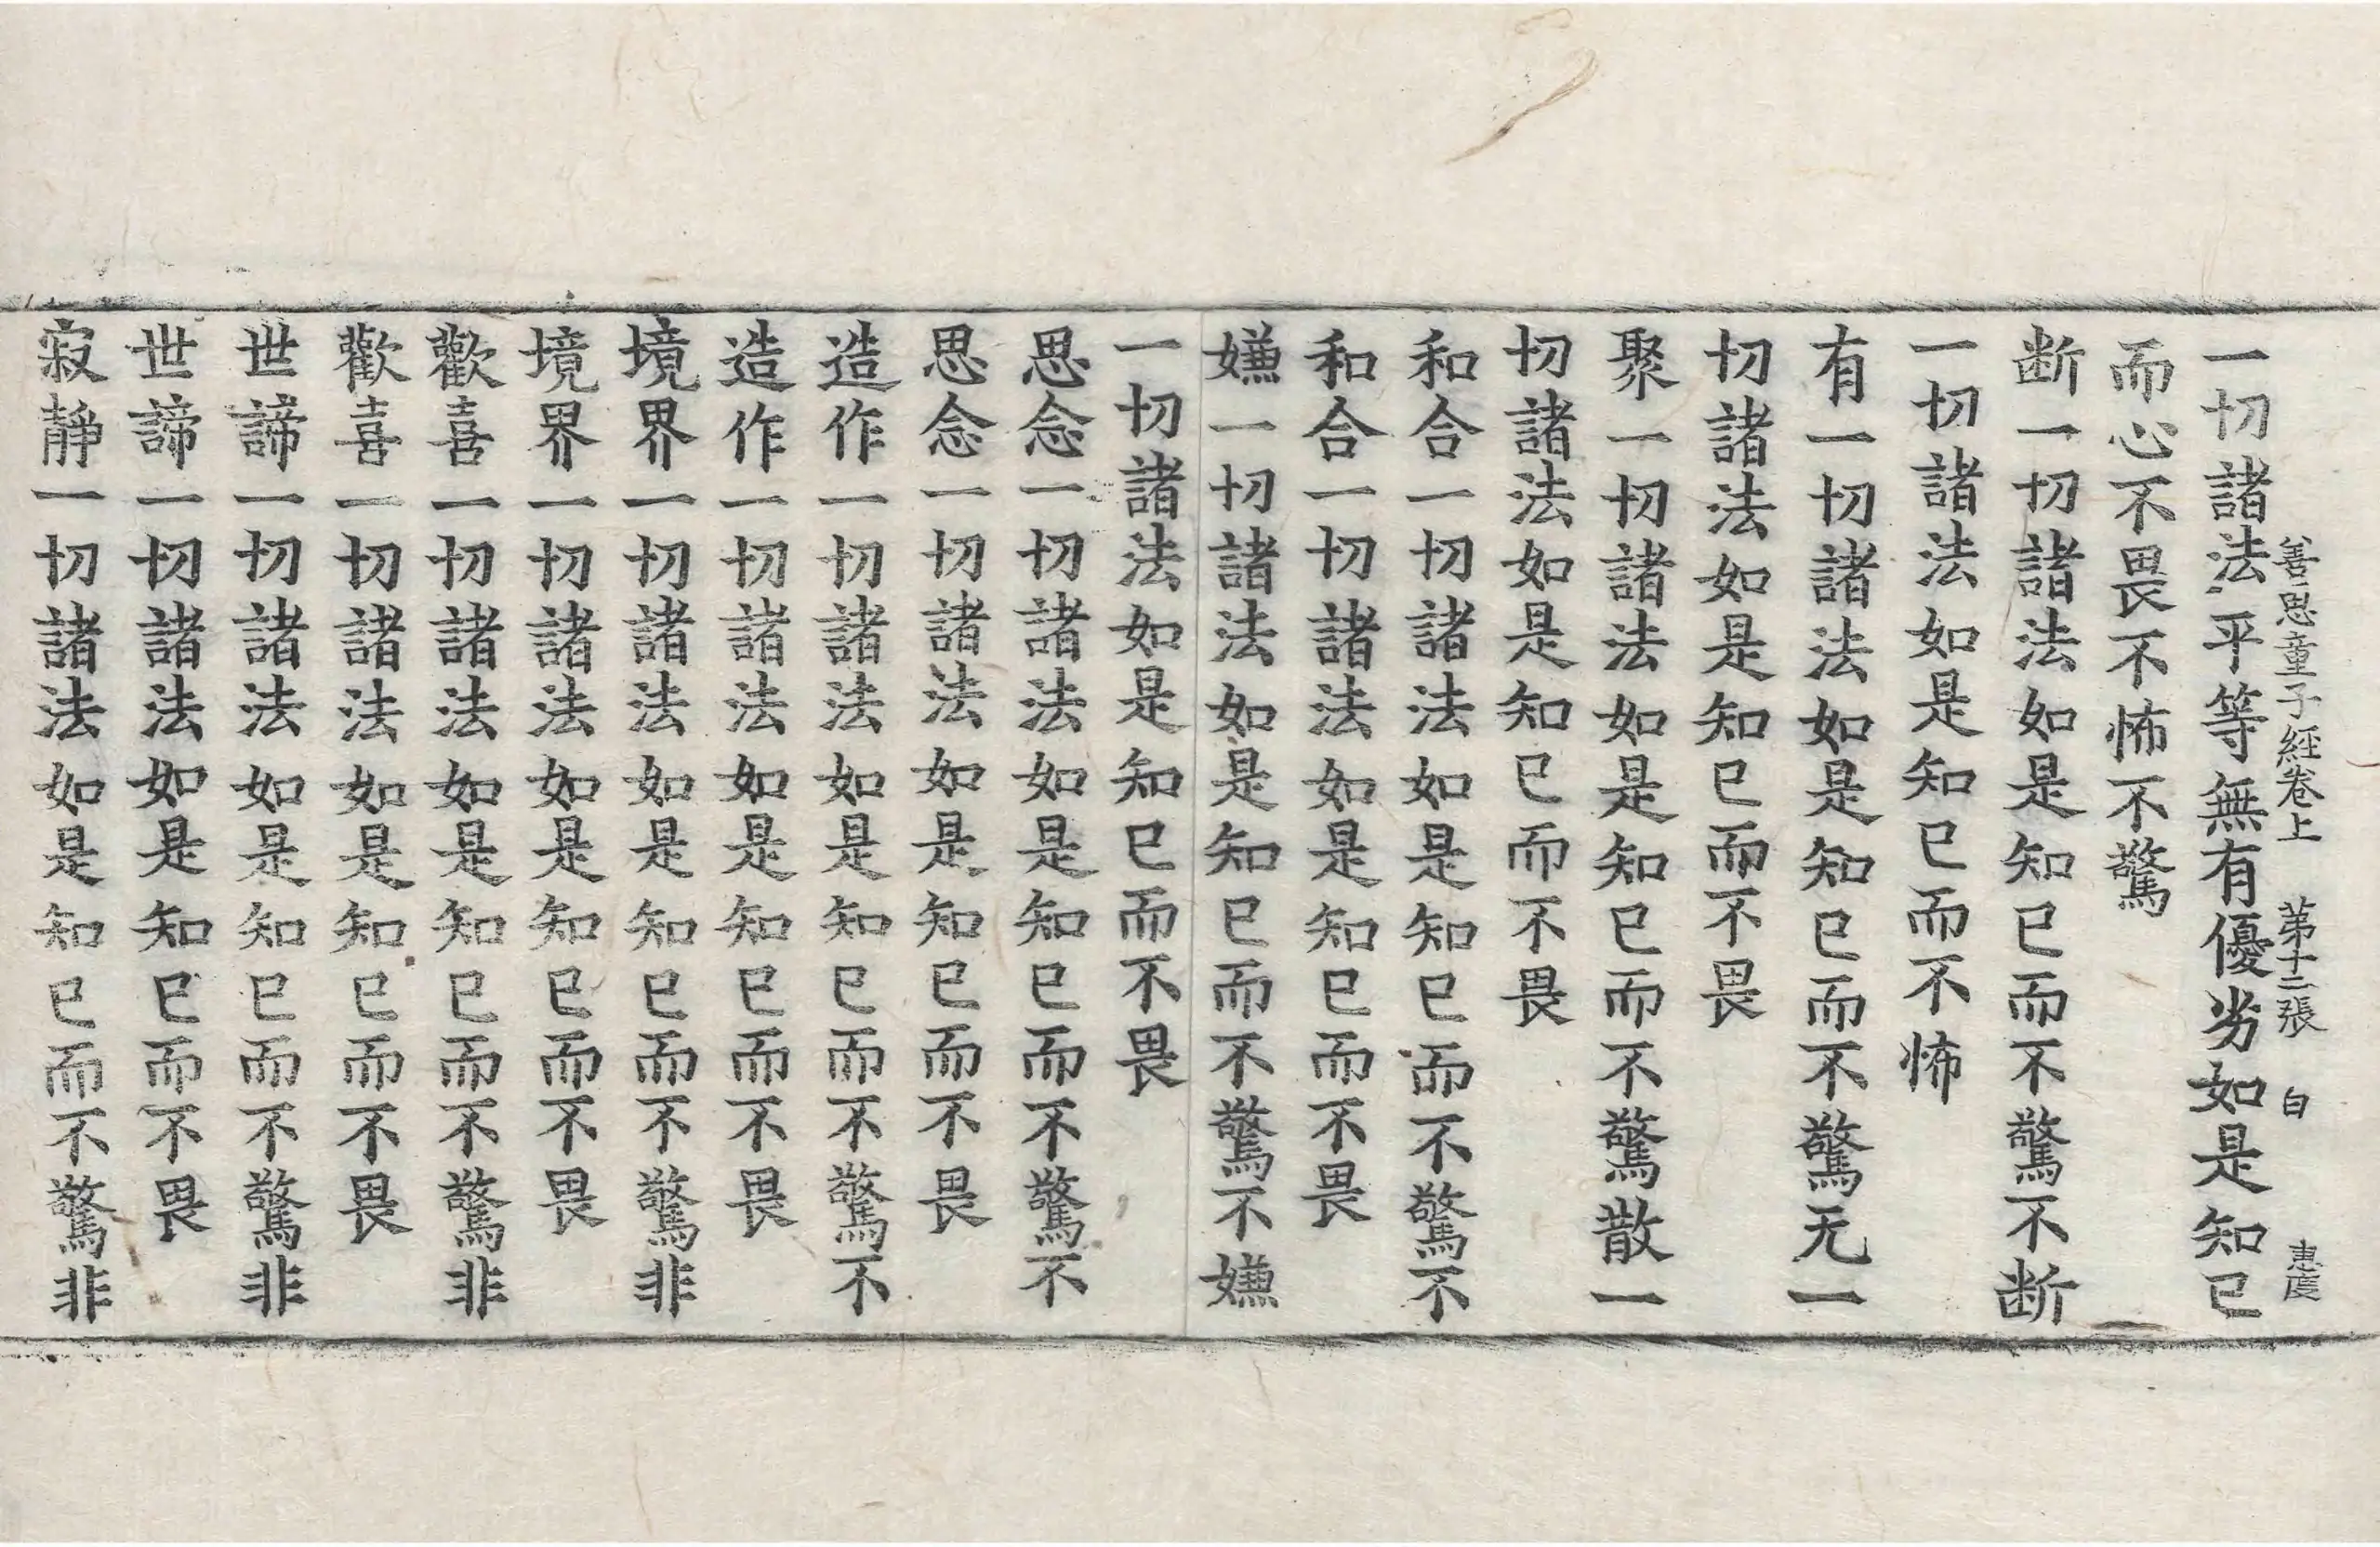 善思童子經卷上　第十二張　白　惠虔
一切諸法平等無有優劣如是知已
而心不畏不怖不驚
断一切諸法如是知已而不驚不断
一切諸法如是知已而不怖
有一切諸法如是知已而不驚无一
切諸法如是知已而不畏
聚一切諸法如是知已而不驚散一
切諸法如是知已而不畏
和合一切諸法如是知已而不驚不
和合一切諸法如是知已而不畏
嫌一切諸法如是知已而不驚不嫌
一切諸法如是知已而不畏
思念一切諸法如是知已而不驚不
思念一切諸法如是知已而不畏
造作一切諸法如是知已而不驚不
造作一切諸法如是知已而不畏
境界一切諸法如是知已而不驚非
境界一切諸法如是知已而不畏
歡喜一切諸法如是知已而不驚非
歡喜一切諸法如是知已而不畏
世諦一切諸法如是知已而不驚非
世諦一切諸法如是知已而不畏
寂靜一切諸法如是知已而不驚非